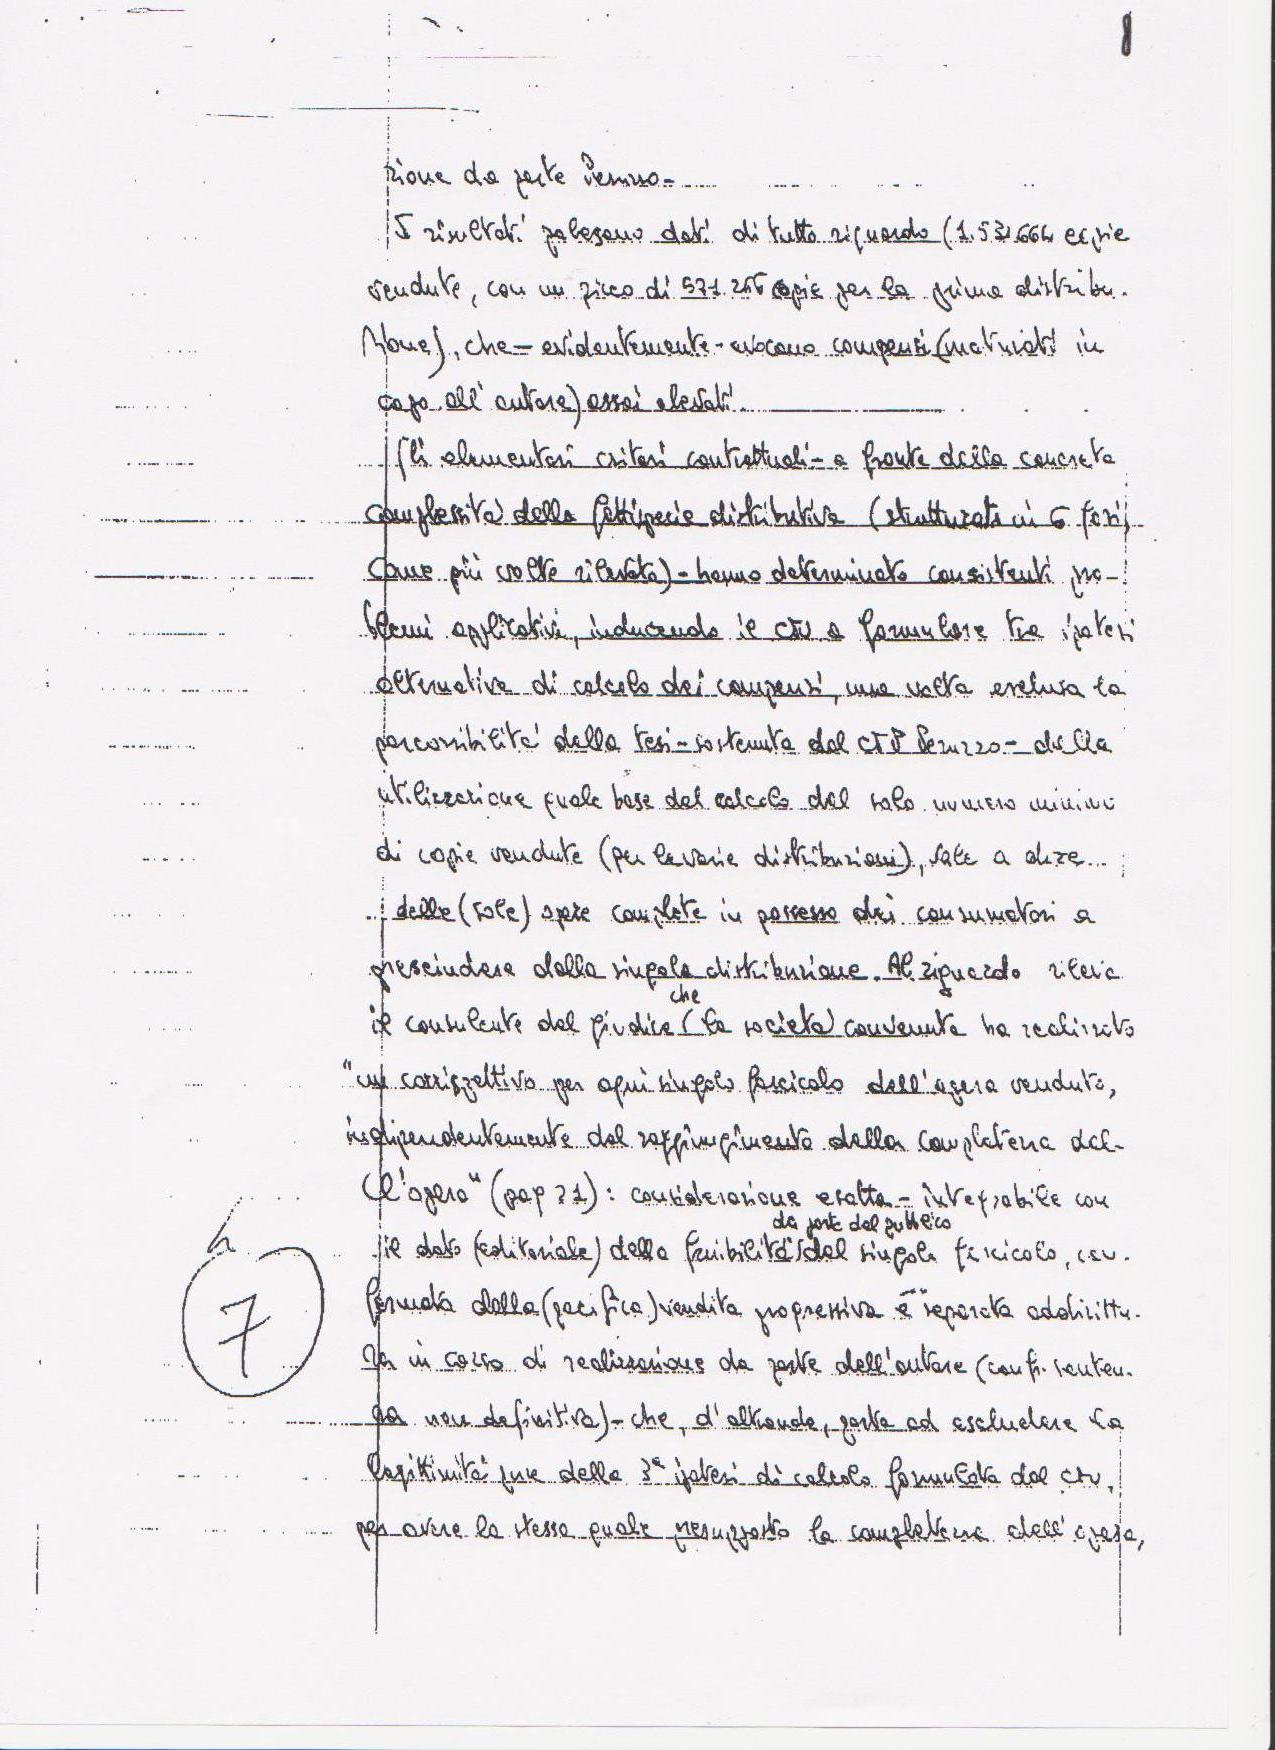 8
zione da parte Peruzzo-
I risultati palesano dati di tutto riguardo (1.531.664 copie
vendute, con un picco di 571.256 copie per la prima distribu-
zione), che - evidentemente - evocano compensi (maturati in
capo all'autore) assai elevati.
Gli elementari criteri contrattuali - a fronte della concreta
complessità della fattispecie distributiva (strutturata in 6 fasi,
come più volte rilevato) - hanno determinato consistenti pro-
blemi applicativi, inducendo il CTU a formulare tre ipotesi
alternative di calcolo dei compensi, una volta esclusa la
percorribilità della tesi - sostenuta dal CTP Peruzzo - della
utilizzazione quale base del calcolo del solo numero minimo
di copie vendute (per le varie distribuzioni), vale a dire
delle (sole) opere complete in possesso dei consumatori a
prescindere dalla singola distribuzione. Al riguardo rileva
il consulente del giudice che (la società) convenuta ha realizzato
"un corrispettivo per ogni singolo fascicolo dell'opera venduto,
indipendentemente dal raggiungimento della completezza del-
l'opera" (pag 21): considerazione esatta - integrabile con
il dato (editoriale) della fruibilità da parte del pubblico del singolo fascicolo, con-
fermata dalla (pacifica) vendita progressiva e separata addirittu-
ra in corso di realizzazione da parte dell'autore (confr. senten-
za non definitiva) - che, d'altronde, porta ad escludere la
legittimità pure della 3ª ipotesi di calcolo formulata dal CTU,
per avere la stessa quale presupposto la completezza dell'opera,
7